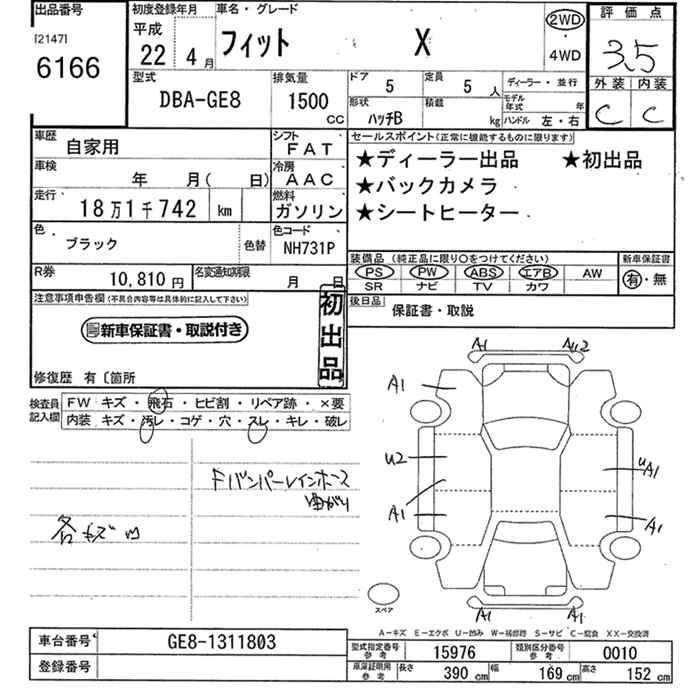 出品番号 初度登録年月 車名・グレード 評価点
[2147] 平成 2WD
6166 22 4月 フィット X 4WD 3.5
型式 排気量 ドア 定員 ディーラー・並行 外装 内装
DBA-GE8 1500 CC 5 5人 モデル年式 年 C C
形状 ハッチB 積載 kg ハンドル 左・右
車歴 自家用 シフト FAT セールスポイント(正常に機能するものに限ります)
車検 年 月( 日) 冷房 AAC ★ディーラー出品 ★初出品
★バックカメラ
走行 18万1千742 km 燃料 ガソリン ★シートヒーター
色 ブラック 色替 色コード NH731P
装備品 (純正品に限り○をつけてください) 新車保証書
PS PW ABS エアB AW 有・無
SR ナビ TV カワ
R券 10,810円 名変通知期限 月 日
後日品 保証書・取説
注意事項申告欄(不具合内容等は具体的に記入して下さい)
新車保証書・取説付き
初出品
修復歴 有〔箇所
検査員記入欄 FW キズ・飛石・ヒビ割・リペア跡・×要
内装・キズ・汚レ・コゲ・穴・スレ・キレ・破レ
Fバンパーレインホース
曲がり
各キズ U
A1 A1 U2
A1
U2 U A1
A1 A1
スペア
A1 A1
A-キズ E-エクボ U-凹み W-補修跡 S-サビ C-腐食 XX-交換済
車台番号 GE8-1311803
登録番号
型式指定番号 参考 15976 類別区分番号 参考 0010
車庫証明用 参考 長さ 390 cm 幅 169 cm 高さ 152 cm